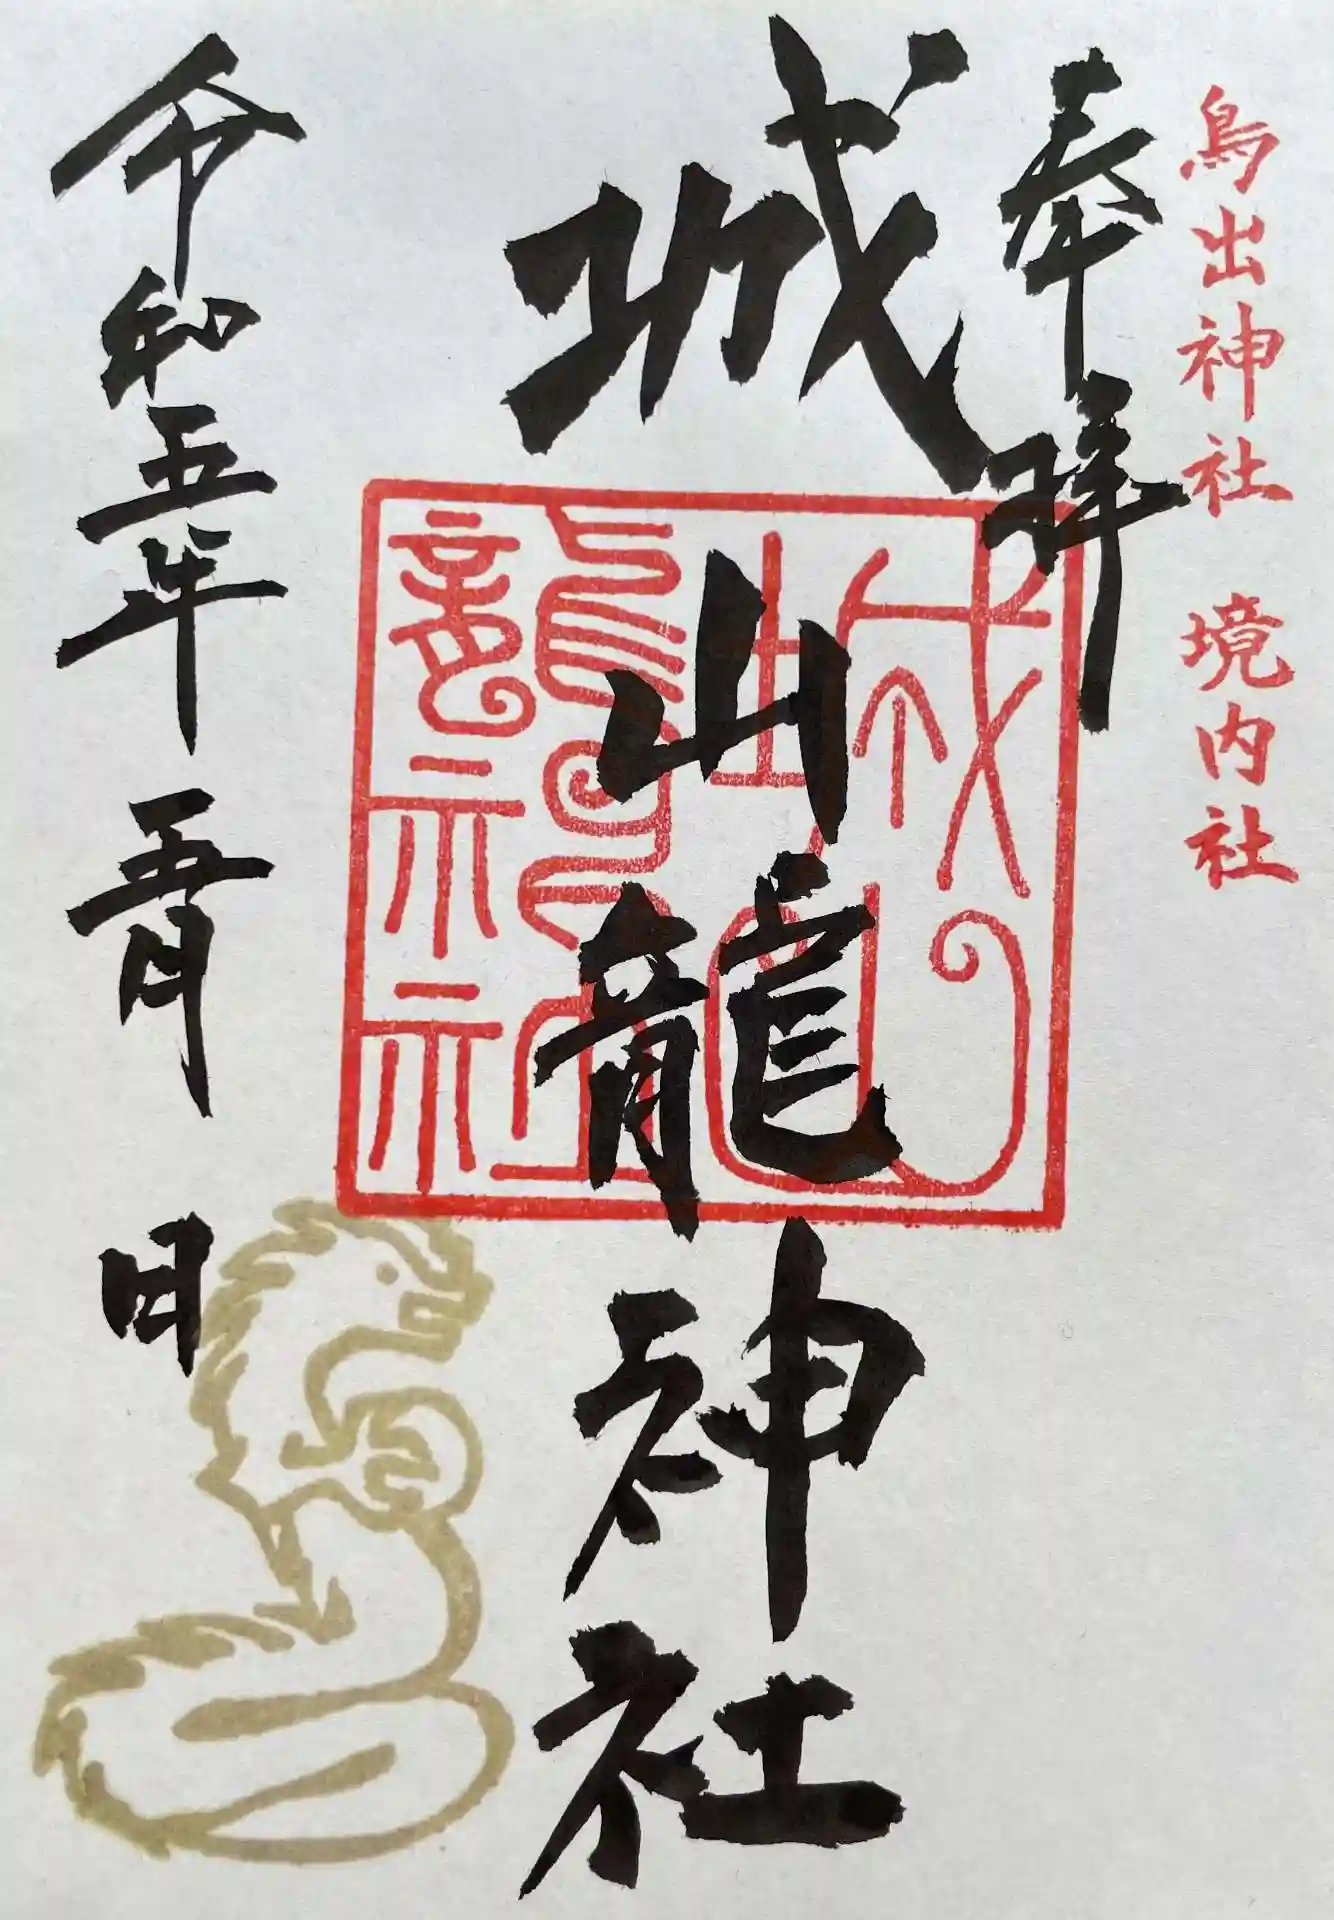 鳥出神社 境内社
奉拝
城山龍神社
城山
龍神社
令和五年 五月 日